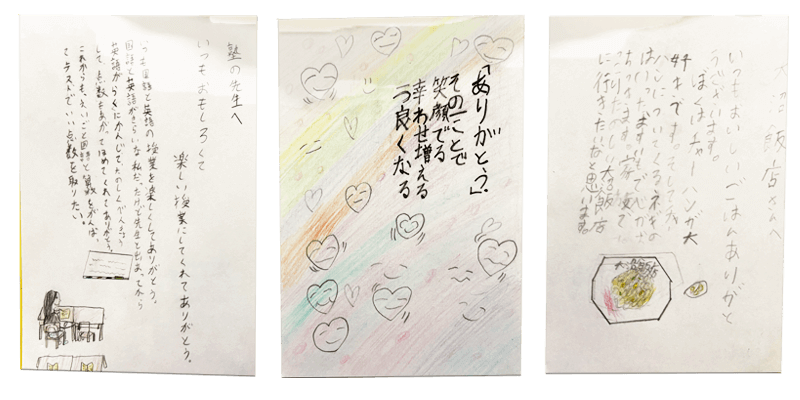 塾の先生へ
いつもおもしろくて
楽しい授業にしてくれてありがとう。
いつも国語と英語の授業を楽しくしてありがとう。
国語と英語がきらいな私だったけど先生と出会ってから
英語がらくにかんじて、たのしくべんきょう
して、点数もあがってほめてくれてありがとう。
これからも、えいごと国語と算数をがんばっ
てテストでいい点数を取りたい。
「ありがとう」
そのことで
笑顔でる
幸わせ増える
良くなる
飯店さんへ
いつもおいしいごはんありがと
うございます。
ぼくはチャーハンが大
好きです。そして
についてくるネギの
飯店
に行きたいなと思います。